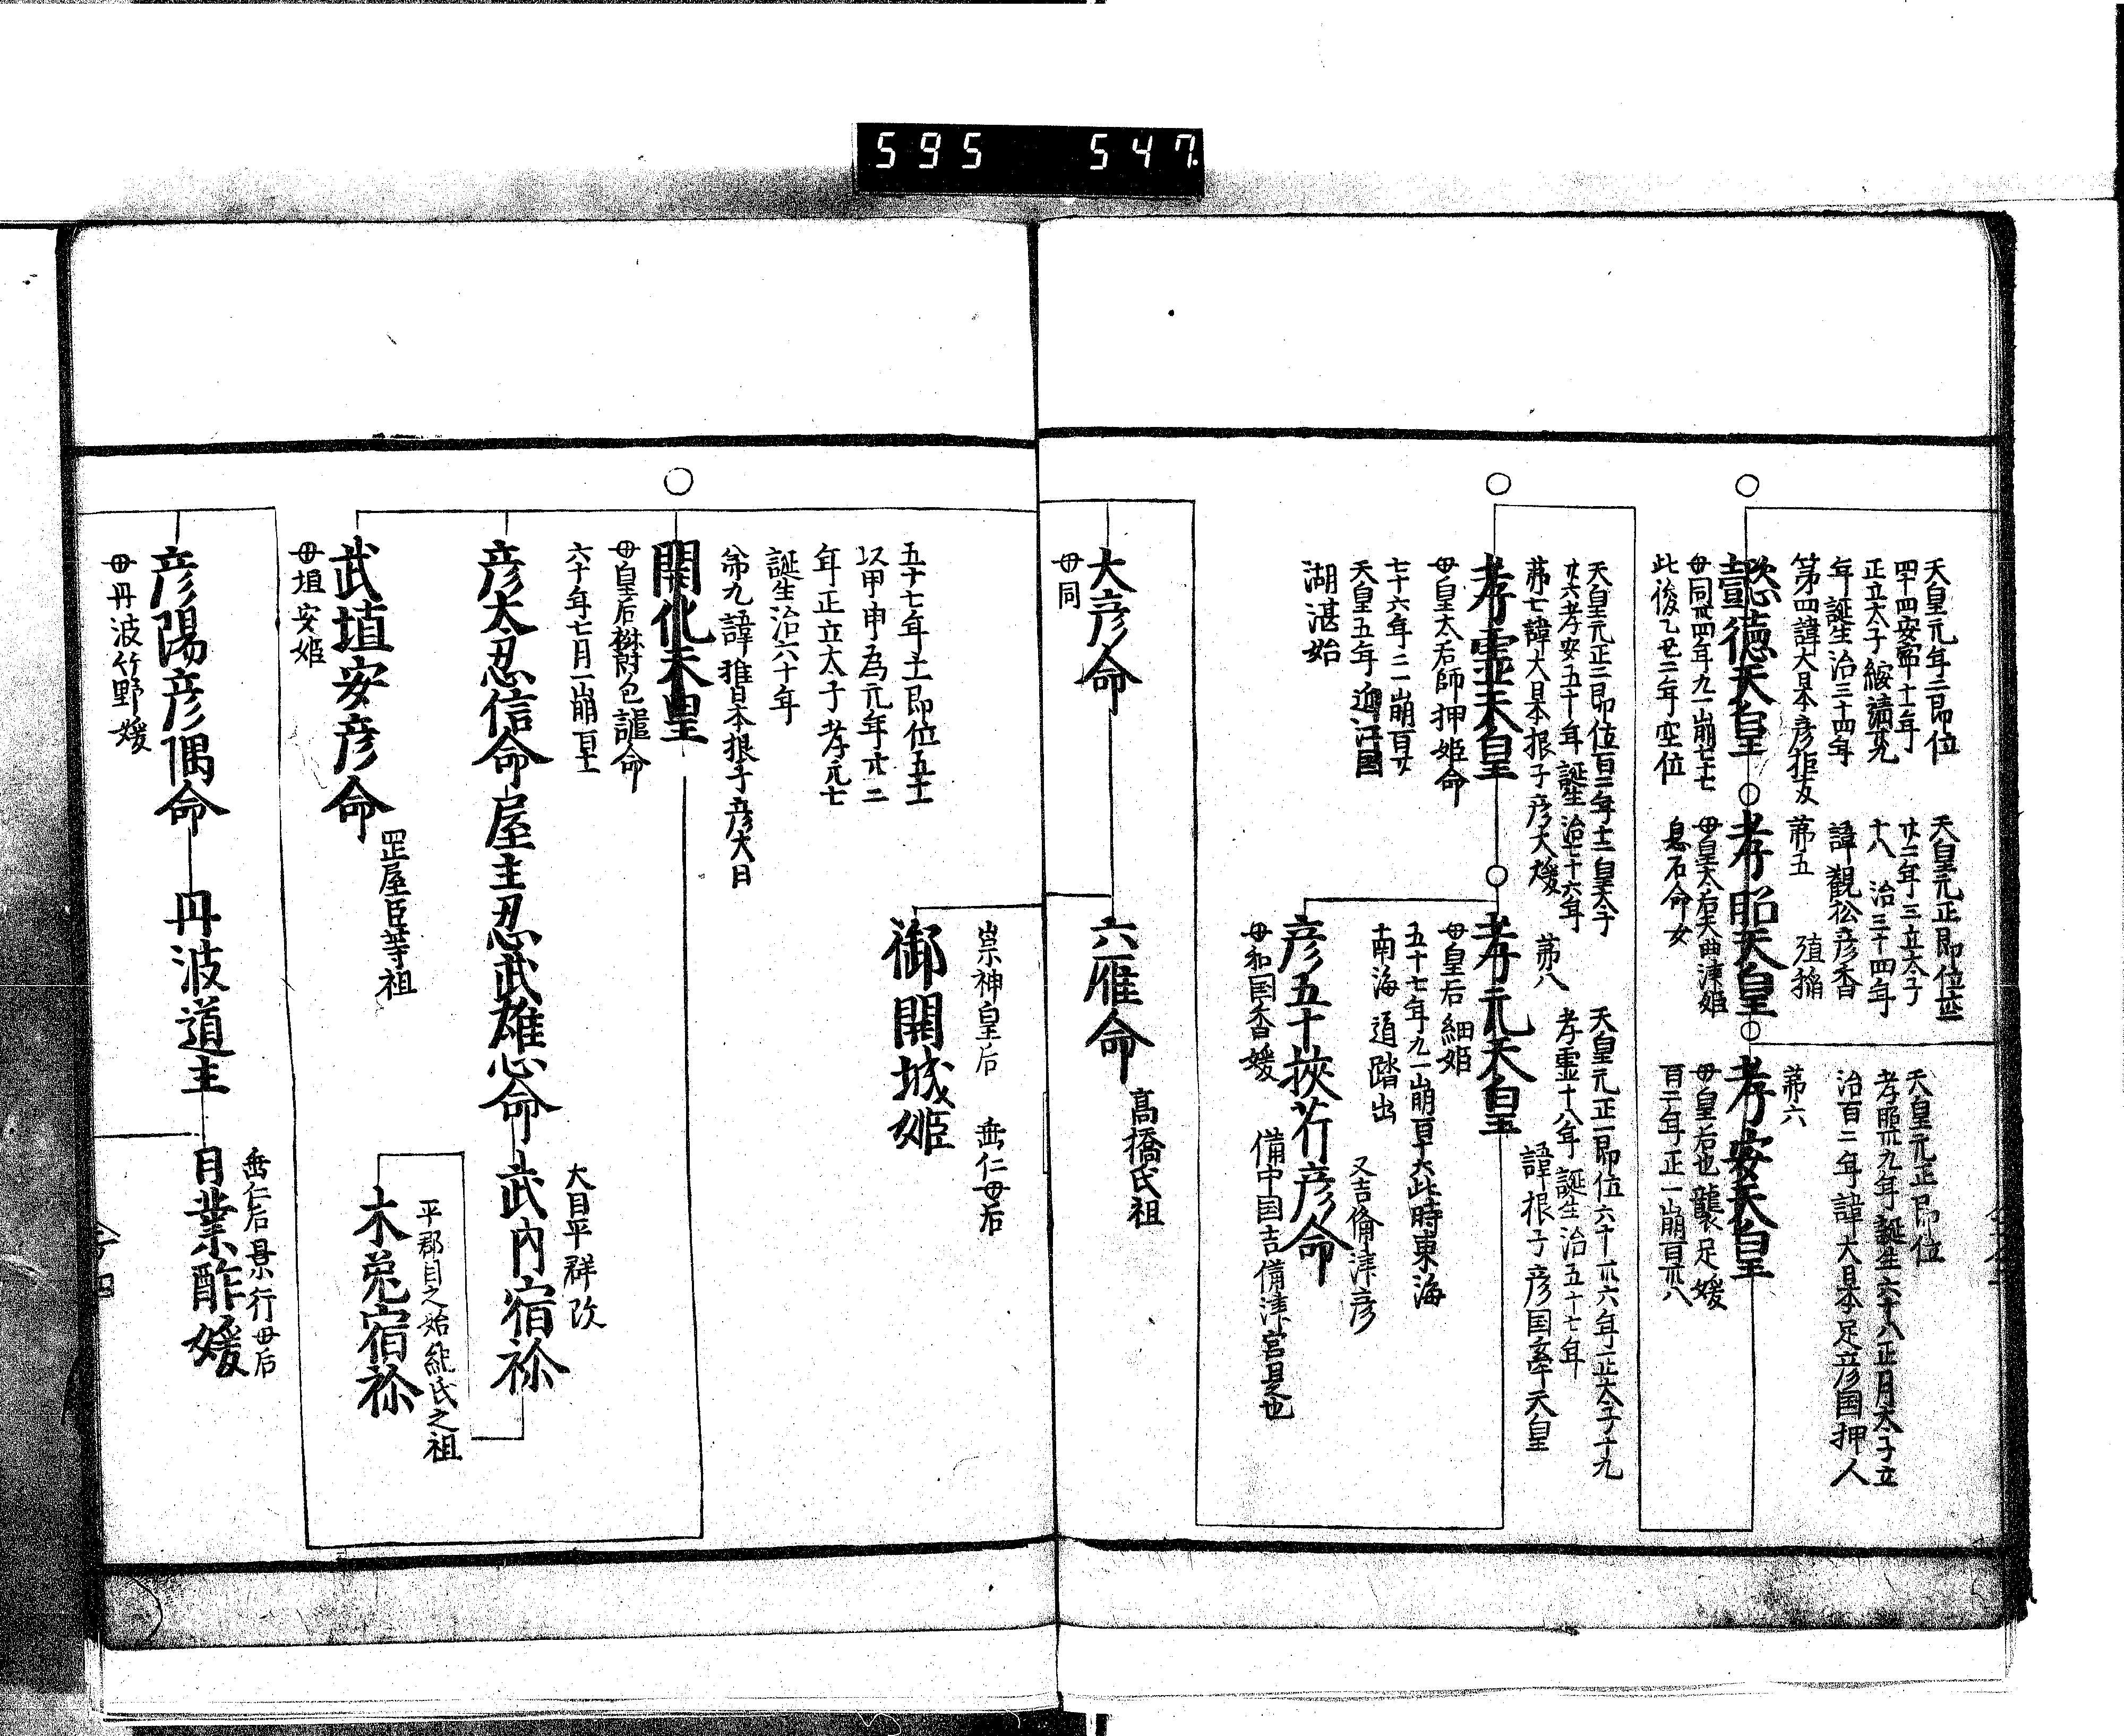 595 547
天皇元年二即位
四十四安寧十一年
正立太子綏靖
年誕生治三十四年
第四諱大日本彦
懿徳天皇
母同 四年九一崩七十七
此後乙丑二年空位
天皇元正即位
廿二年三立太子
十八 治三十四年
諱観松彦香
殖稲
第五
孝昭天皇
母皇太后天豊津姫
息石命女
天皇元正即位
孝照 九年誕生六十八正月太子立
治百二年諱大日本足彦国押人
第六
孝安天皇
母皇后也襲足媛
百二年正一崩
天皇元正三即位百二年十二皇太子
廿六孝安五十年誕生治七十六年
第七諱大日本根子彦大媛
孝霊天皇
母皇太后師押姫命
七十六年二一崩百廿
天皇五年近江国
湖湛始
天皇元正一即位六十 六年正太子十九
孝霊十八年誕生治五十七年
諱根子彦国牽天皇
第八
孝元天皇
母皇后細姫
五十七年九一崩百十六此時東海
南海道踏出
彦五十挾芹彦命
又吉備津彦
母和国香媛
備中国吉備津宮是也
大彦命
母同
六雁命
高橋氏祖
御間城姫
崇神皇后 垂仁母后
五十七年十二即位五十一
以甲申為元年
年正立太子孝元七
誕生治六十年
第九諱稚日本根子彦大日
開化天皇
母皇后欝色謎命
六十年七月一崩
彦太忍信命
屋主忍武雄心命
武内宿祢
大目平群改
木菟宿祢
平郡目之始紀氏之祖
武埴安彦命
母埴安姫
屋臣等祖
彦陽彦隅命
母丹波竹野媛
丹波道主
日葉酢媛
垂仁后景行母后